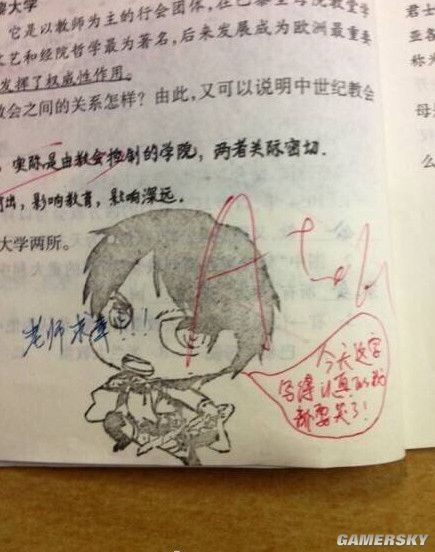 黎大学
它是以教师为主的行会团体，在巴黎圣母院教堂学
文艺和经院哲学最为著名，后来发展成为欧洲最重要
发挥了权威性作用。
教会之间的关系怎样？由此，又可以说明中世纪教会
实际是由教会控制的学院，两者关际密切．
出，影响教育，影响深远．
大学两所。
老师求!!!
A
今天这字
写得认真的我
都要哭了!
君士
亚各
称
母
么
GAMERSKY